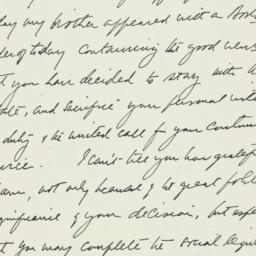 day my brother appeared with a Bost
der of today containing the good news
t you have decided to stay with
and sacrifice your personal
duty & the united call for your
vice. I can't tell you how grateful
am, not only because of the great
significance of your decision, but espec
t you may complete the social